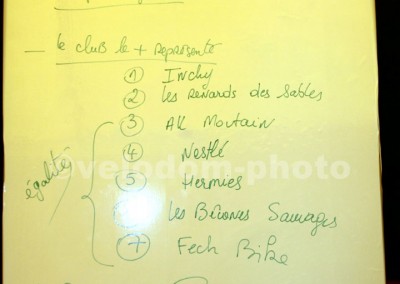 — le club le + représenté
① Inchy
② Les Renards des Sables
③ AK Moutain
④ Nestlé
⑤ Hermies
Les Bécones Sauvages
⑦ Fech Bike
égalités
velodom-photo